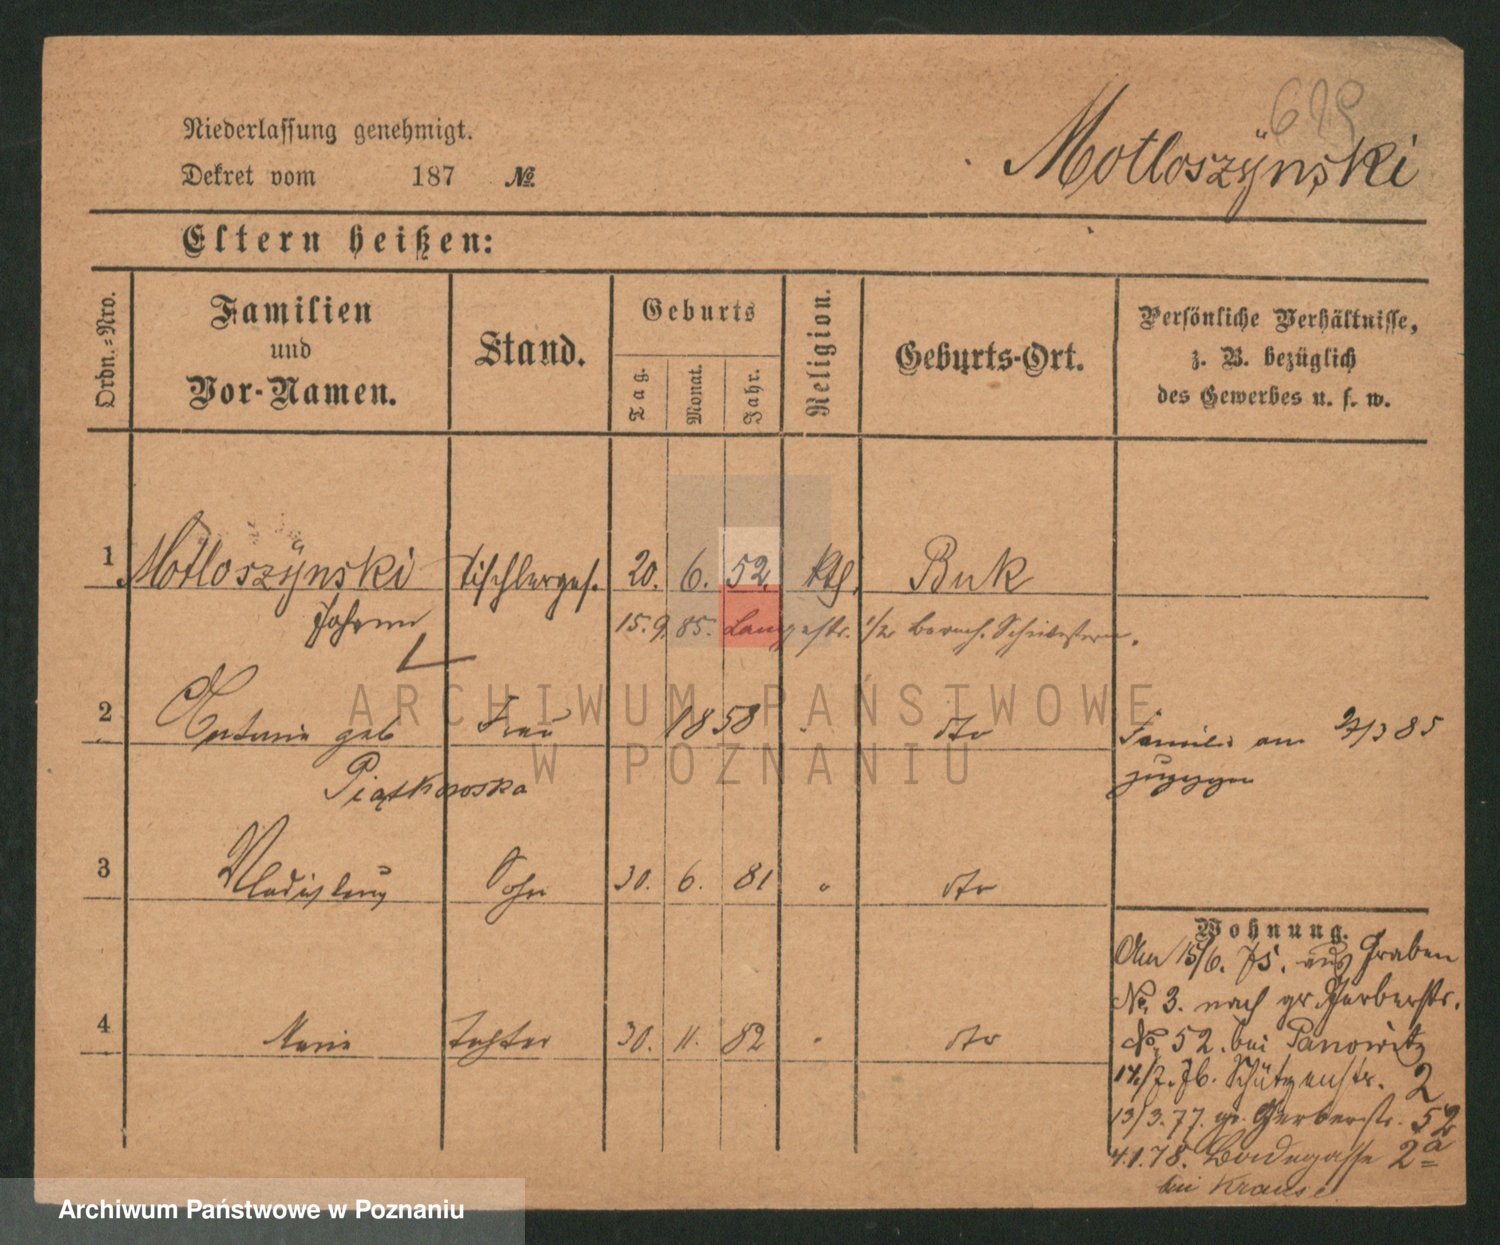 619
Niederlassung genehmigt.
Dekret vom 187 №.
Motloszÿnski
Eltern heißen:
Ordn.=Nro.
Familien
und
Vor-Namen.
Stand.
Geburts
Tag.
Monat.
Jahr.
Religion.
Geburts-Ort.
Persönliche Verhältnisse,
z. B. bezüglich
des Gewerbes u. s. w.
1 Motloszÿnski Tischlerges. 20. 6. 52. kth. Buk
Johann
15. 9. 85. Langestr.
2 Antonie geb Frau 1858 " dto
Piątkowska
Familie am 27/3 85
zugezogen
3 Wladislaus Sohn 30. 6. 81 " dto
4 Marie Tochter 30. 11. 82 " dto
Wohnung.
Am 15/6. 75. aus Graben
№ 3. nach gr Gerberstr.
№ 52. bei Panowitz
17/7. 76. Schützenstr. 2
13/3. 77. gr. Gerberstr. 52
4.1.78. 2a
bei Krause
ARCHIWUM PAŃSTWOWE
W POZNANIU
Archiwum Państwowe w Poznaniu